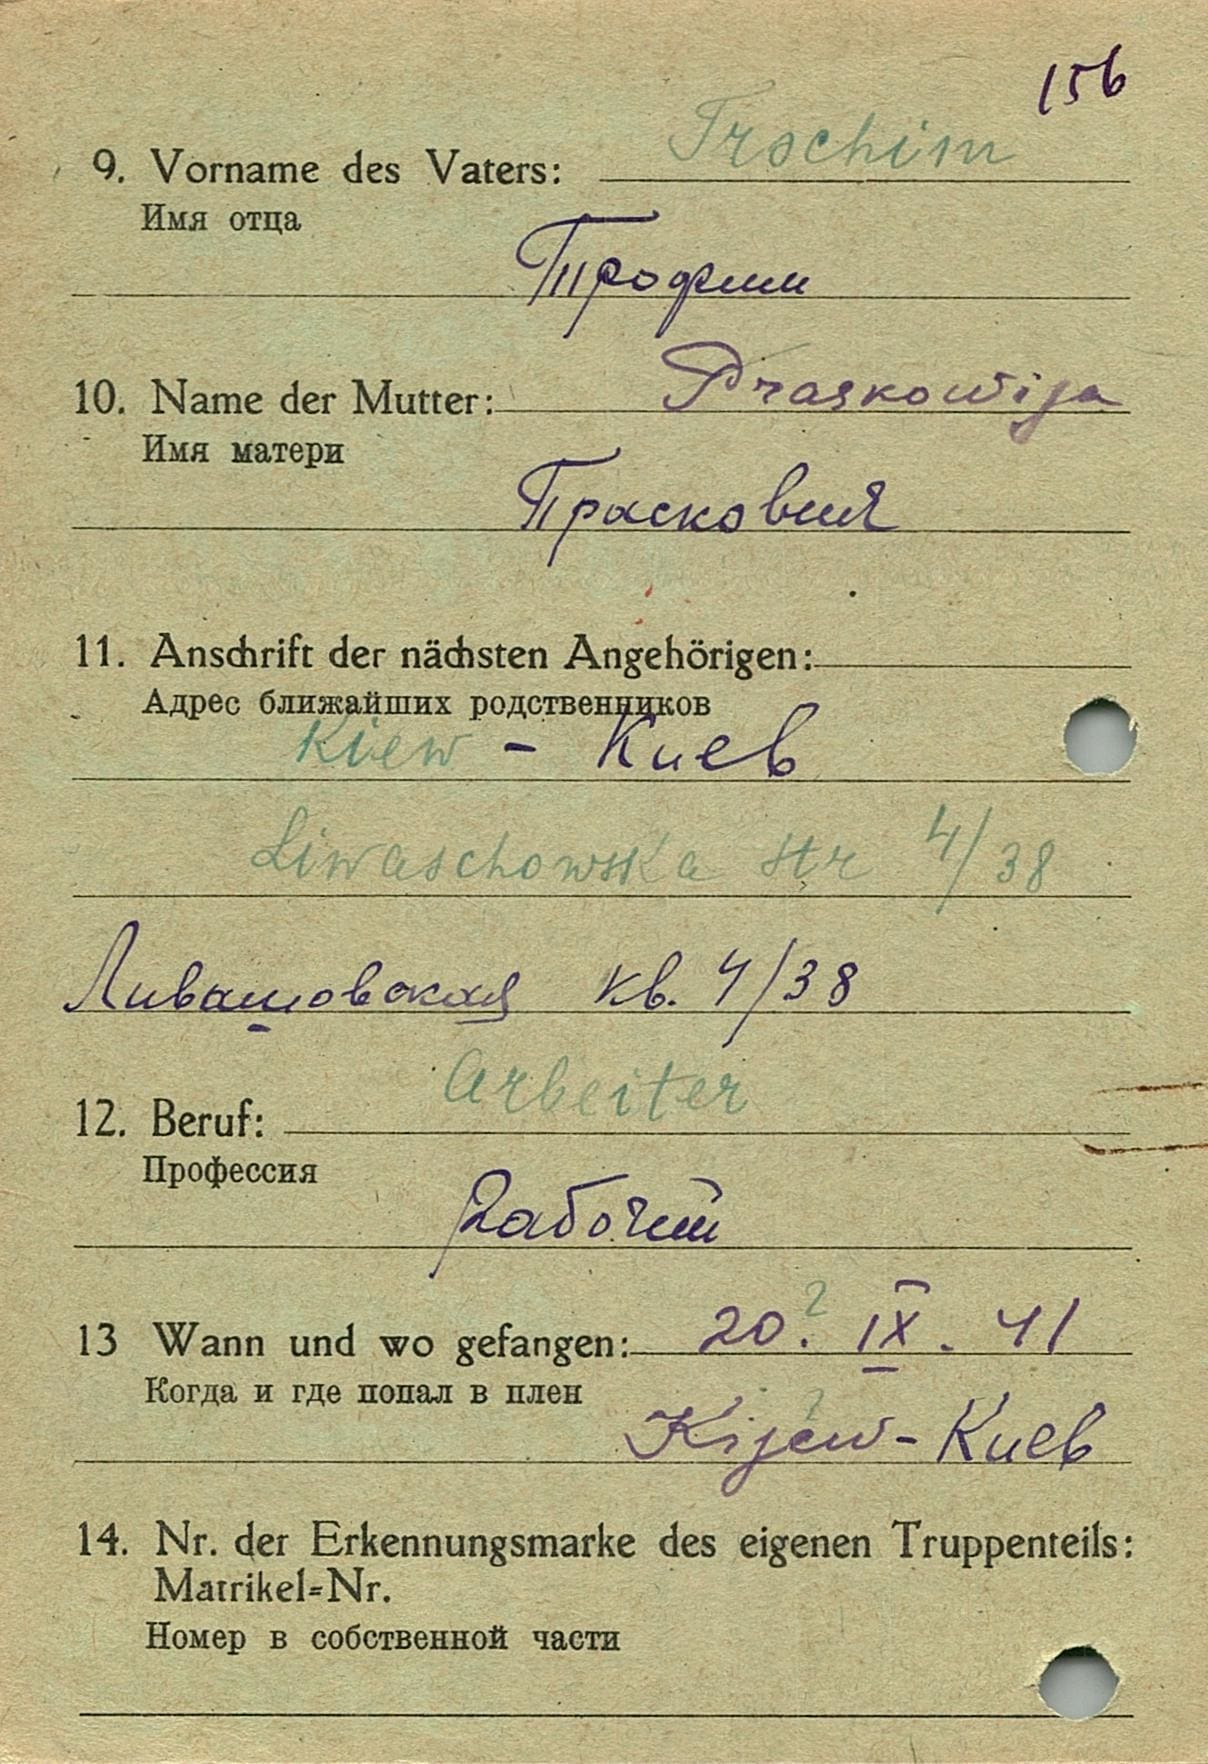 156
9. Vorname des Vaters: Trochim
Имя отца
Трофим
10. Name der Mutter: Praskowija
Имя матери
Прасковия
11. Anschrift der nächsten Angehörigen:
Адрес ближайших родственников
Kiew - Киев
Liwaschowska str 4/38
Ливашовская кв. 4/38
Arbeiter
12. Beruf:
Профессия
Рабочий
13 Wann und wo gefangen: 20. ? IX. 41
Когда и где попал в плен
Kijew - Киев
14. Nr. der Erkennungsmarke des eigenen Truppenteils:
Matrikel=Nr.
Номер в собственной части